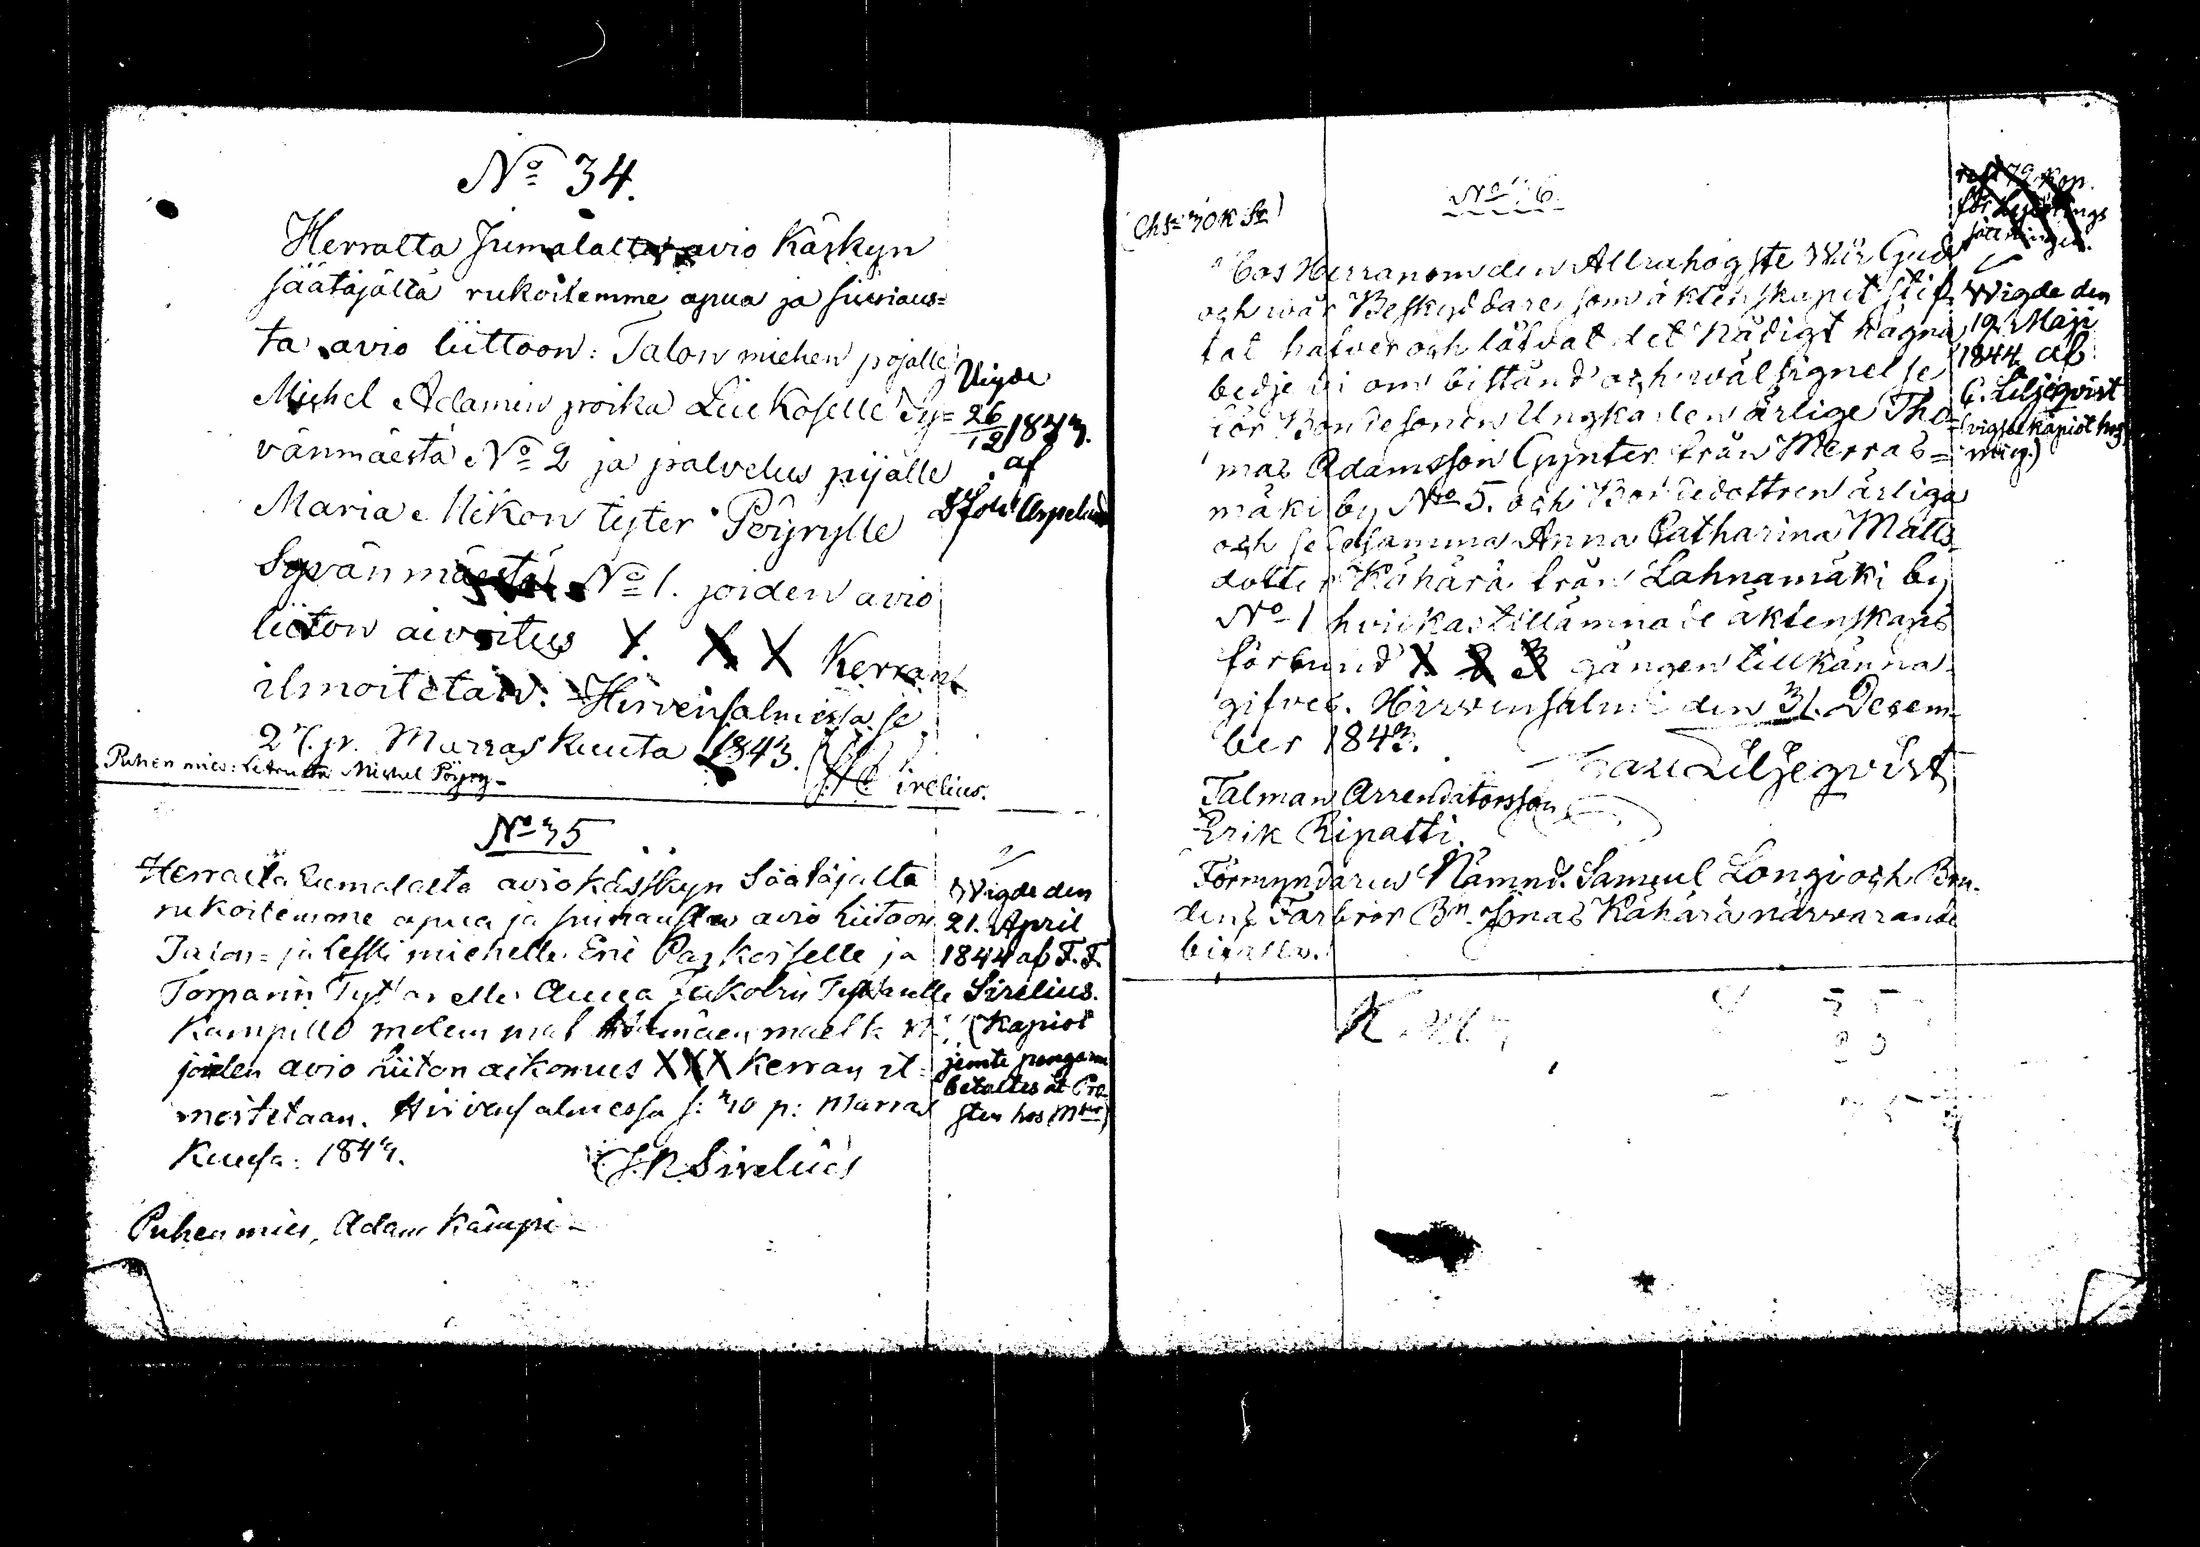 No 34.
Herralta Jumalalta avio Käskyn
säätäjältä rukoilemme apua ja siunaus=
ta avio liittoon: Talon miehen pojalle
Michel Adamin poika Liukoselle Sy=
vänmäestä No 2 ja palvelus pijalle
Maria Mikon tyter Pöyrylle
Syvänmäestä No 1. joiden avio
liiton aivoitus X. X X Kerran
ilmoitetan. Hirvensalmessa se
27. p. Marras Kuuta 1843.
Sirelius.
Puhen mies: Michel Pöyry
Vigde
26/12 1843.
af
Arpelund
No 35
Herralta Jumalalta avio kässkyn Säätäjältä
rukoilemme apua ja siunausta avio liitoon
Talon= ja leski miehelle Eric Paskoiselle ja
Torparin Tyttarelle Anna Jakobin Tyttarelle
Kämpille molemmat
joiden avio liiton aikomus XXX kerran il=
moitetaan. Hirvensalmessa s: 30 p: Marras
Kuusa: 1843.
Sirelius
Puhen mies, Adam Kämpi
Wigde den
21. April
1844 af F. F.
Sirelius.
(Kapiot
jemte pengarne
betaltes åt Pro-
sten hos
No 36.
Hos Herranom den Allrahögste Wår Gud
och wår Beskyddare, som äktenskapet stif-
tat hafver och låfvat det nådigt hägna
bedje vi om bistånd och wälsignelse
för Bondesonen Ungkarlen ärlige Tho=
mas Adamsson Gynter från Merras=
mäki by No 5. och Bondedottren ärliga
och sedesamma Anna Catharina Matts-
dotter Kähärä från Lahnamäki by
No 1 hvilkas tillämnade äktenskaps
förbund X 2 3 gången tillkänna-
gifves. Hirvensalmi den 31. Decem-
ber 1843.
Liljeqvist
Talman Arrendatorsson
Erik Ripatti.
Förmyndaren Nämnd. Samuel Longi och Bru-
dens Farbror Bn. Jonas Kähärä närwarande
bifalla.
för
Wigde den
19 Maji
1844 af
C. Liljeqvist
(vigde kapiot hos
mig.)